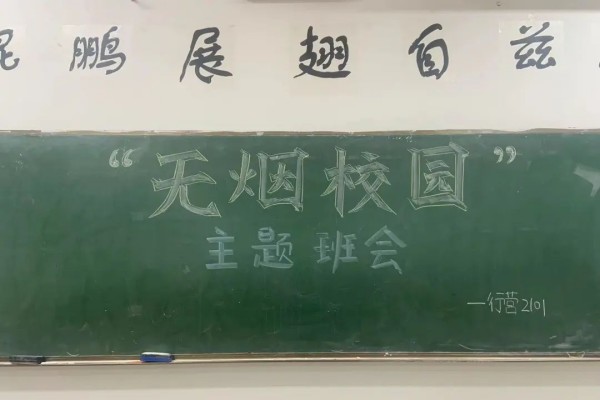 昆鹏展翅自兹
“无烟校园”
主题班会
一行营2101